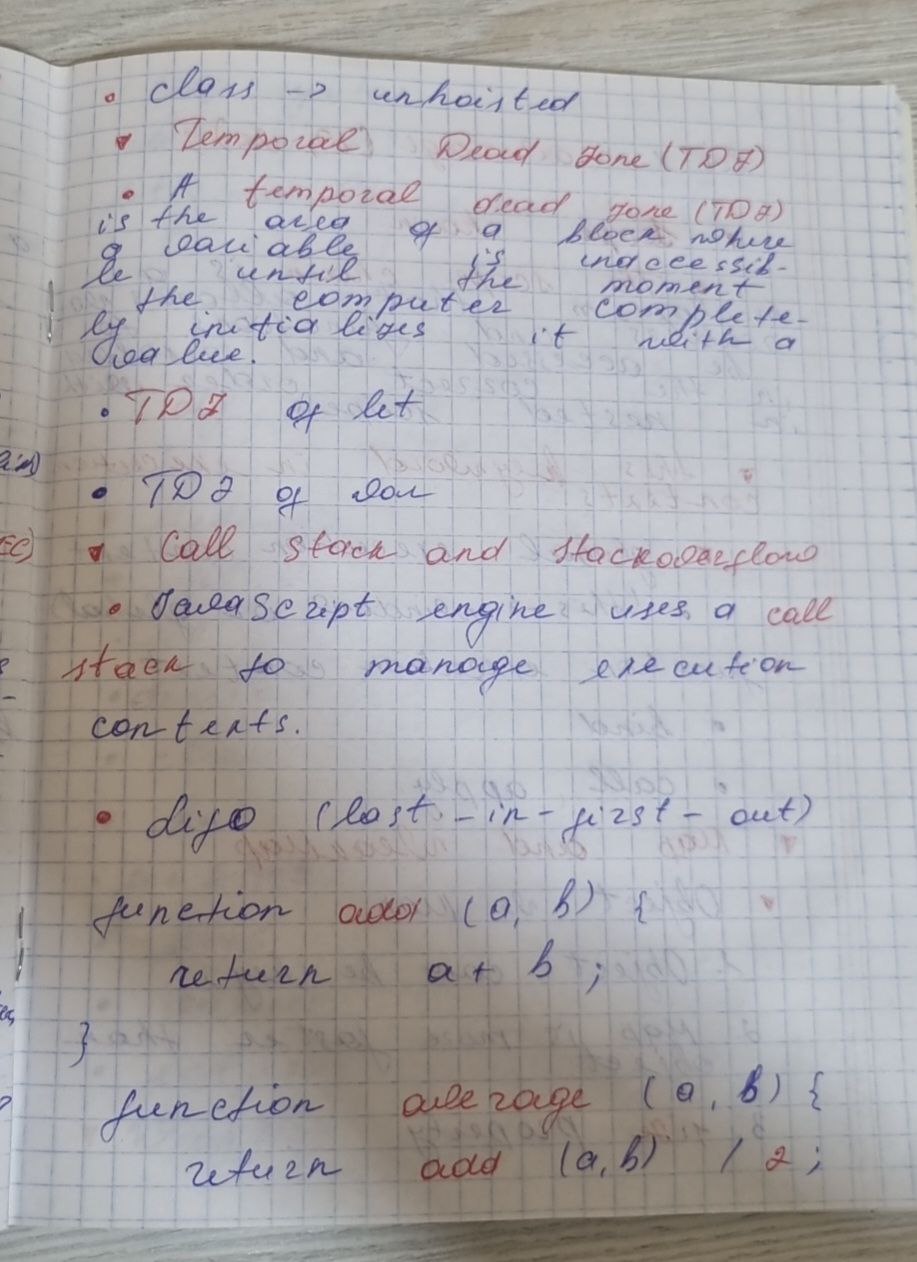 • class -> unhoisted
▾ Temporal Dead zone (TDZ)
• A temporal dead zone (TDZ)
is the area of a block where
a variable is inaccessib-
le until the moment
the computer complete-
ly initializes it with a
value.
• TDZ of let
• TDZ of var
▾ Call stack and stackoverflow
• JavaScript engine uses a call
stack to manage execution
contexts.
• Lifo (last-in-first-out)
function add (a, b) {
return a + b ;
}
function average (a, b) {
return add (a, b) / 2 ;